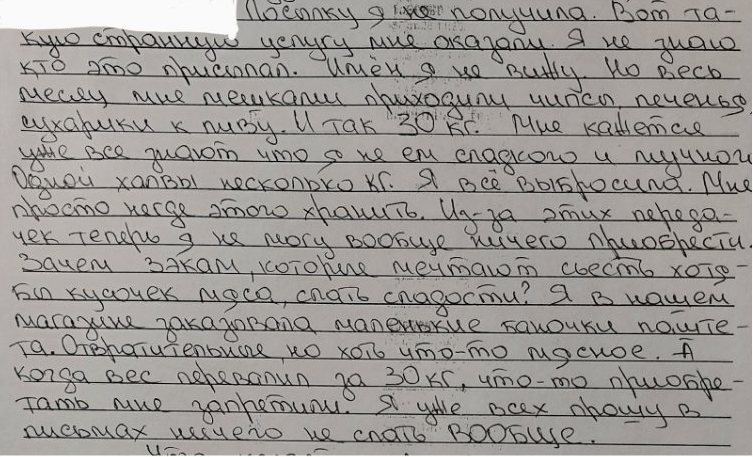 Посылку я не получила. Вот та-
кую странную услугу мне оказали. Я не знаю
кто это присылал. Имён я не вижу. Но весь
месяц мне мешками приходили чипсы, печенья,
сухарики к пиву. И так 30 кг. Мне кажется
уже все знают что я не ем сладкого и мучного
Одной халвы несколько кг. Я всё выбросила. Мне
просто негде этого хранить. Из-за этих переда-
чек теперь я не могу вообще ничего приобрести.
Зачем зэкам, которые мечтают съесть хотя-
бы кусочек мяса, слать сладости? Я в нашем
магазине заказывала маленькие баночки паште-
та. Отвратительные, но хоть что-то мясное. А
когда вес перевалил за 30 кг, что-то приобре-
тать мне запретили. Я уже всех прошу в
письмах ничего не слать ВООБЩЕ.